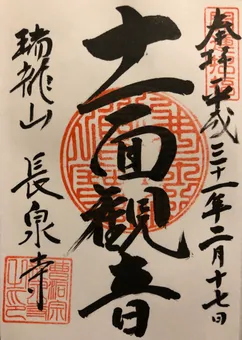 奉拝 平成三十一年二月十七日
十一面観音
瑞龍山 長泉寺